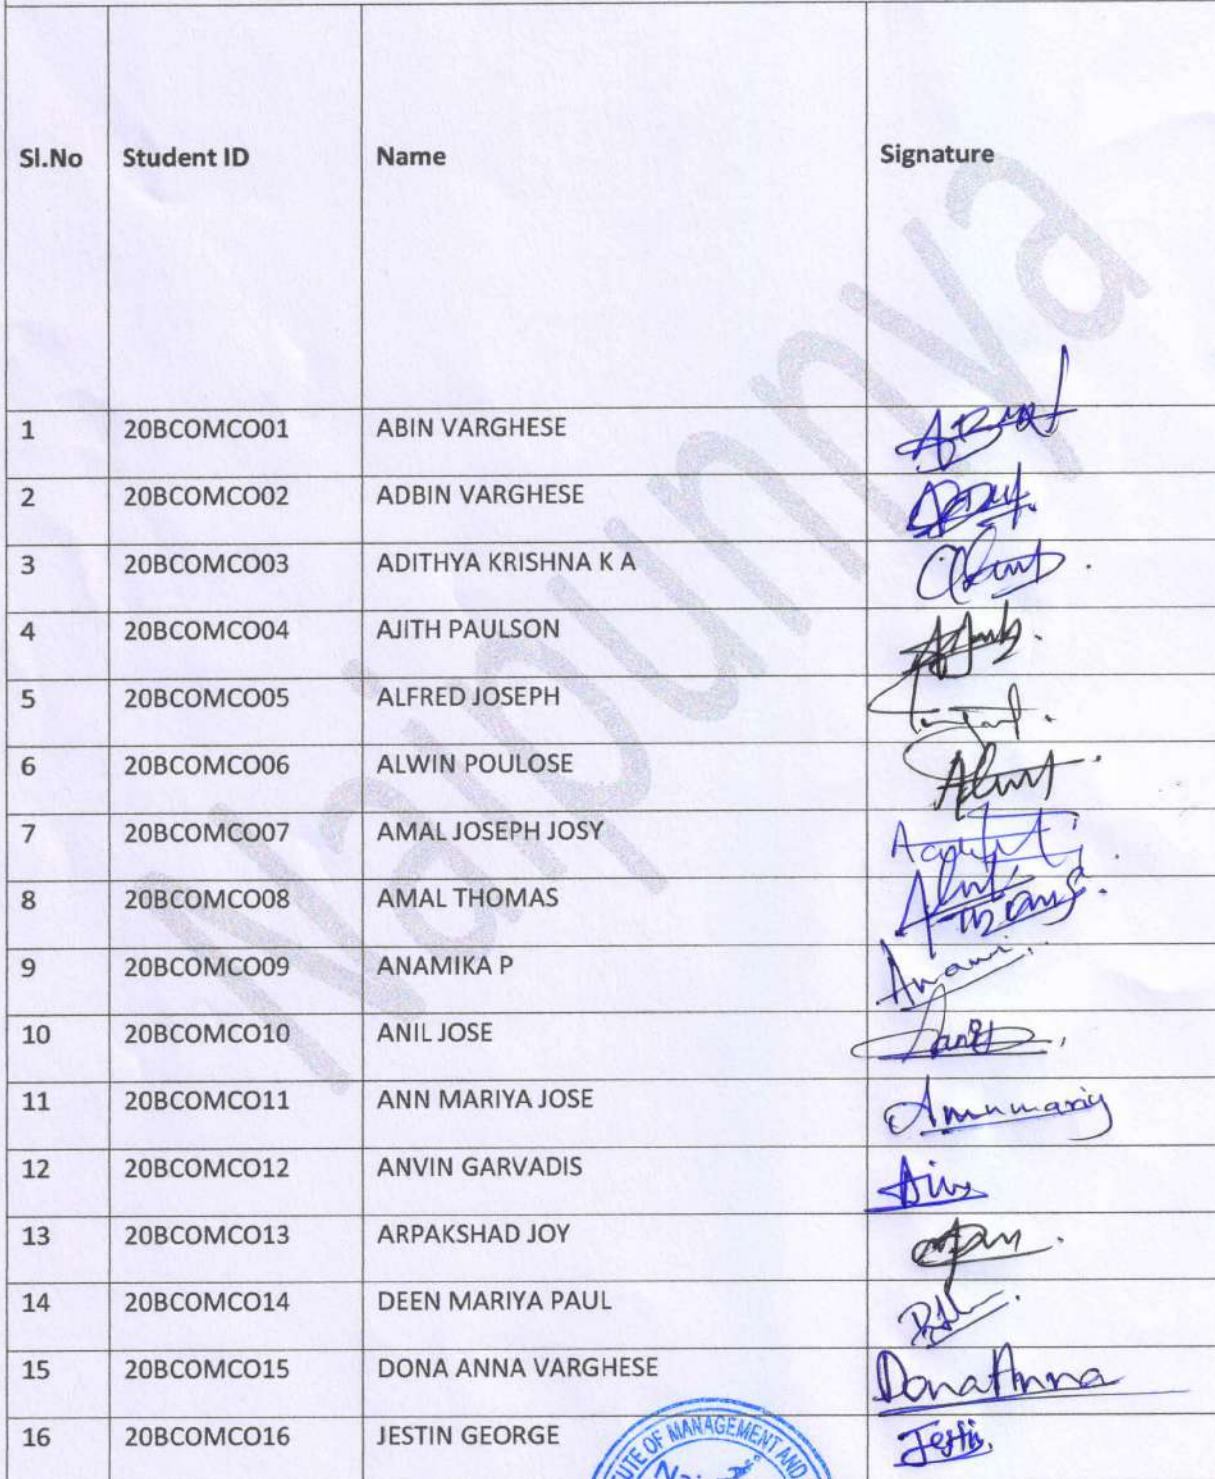 Sl.No Student ID Name Signature
1 20BCOMCO01 ABIN VARGHESE
2 20BCOMCO02 ADBIN VARGHESE
3 20BCOMCO03 ADITHYA KRISHNA K A
4 20BCOMCO04 AJITH PAULSON
5 20BCOMCO05 ALFRED JOSEPH
6 20BCOMCO06 ALWIN POULOSE
7 20BCOMCO07 AMAL JOSEPH JOSY
8 20BCOMCO08 AMAL THOMAS
9 20BCOMCO09 ANAMIKA P
10 20BCOMCO10 ANIL JOSE
11 20BCOMCO11 ANN MARIYA JOSE
12 20BCOMCO12 ANVIN GARVADIS
13 20BCOMCO13 ARPAKSHAD JOY
14 20BCOMCO14 DEEN MARIYA PAUL
15 20BCOMCO15 DONA ANNA VARGHESE Dona Anna
16 20BCOMCO16 JESTIN GEORGE
OF MANAGEMENT AND
Naipunnya